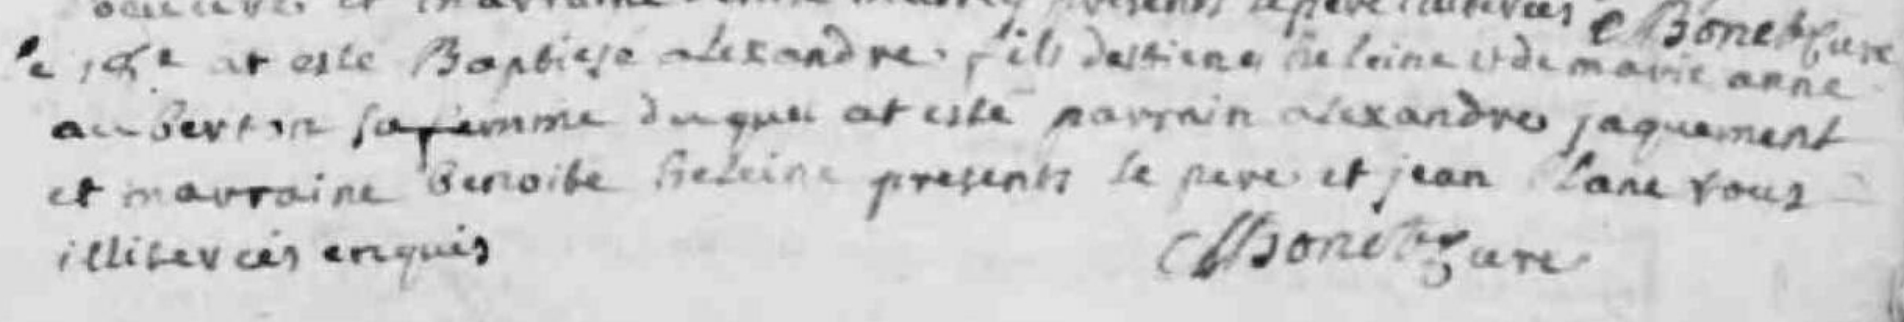 et marraine presents le pere illiterées Bonet Cure
le at este Baptise alexandre fils destiene heleine et de marie anne
auberton sa femme duquel at esté parrain alexandre jaquemont
et marraine benoite heleine presents le pere et jean tous
illiterées enquis Bonet Cure